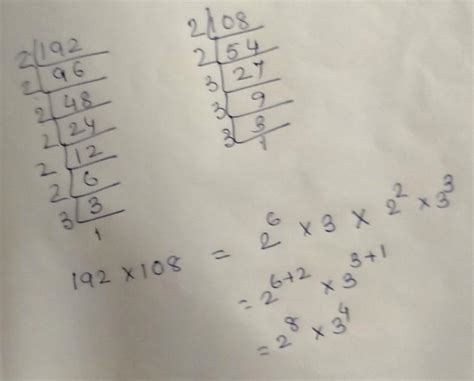 2 192
2 96
2 48
2 24
2 12
2 6
3 3
1
2 108
2 54
3 27
3 9
3 3
1
192 × 108 = 2⁶ × 3 × 2² × 3³
= 2⁶⁺² × 3³⁺¹
= 2⁸ × 3⁴